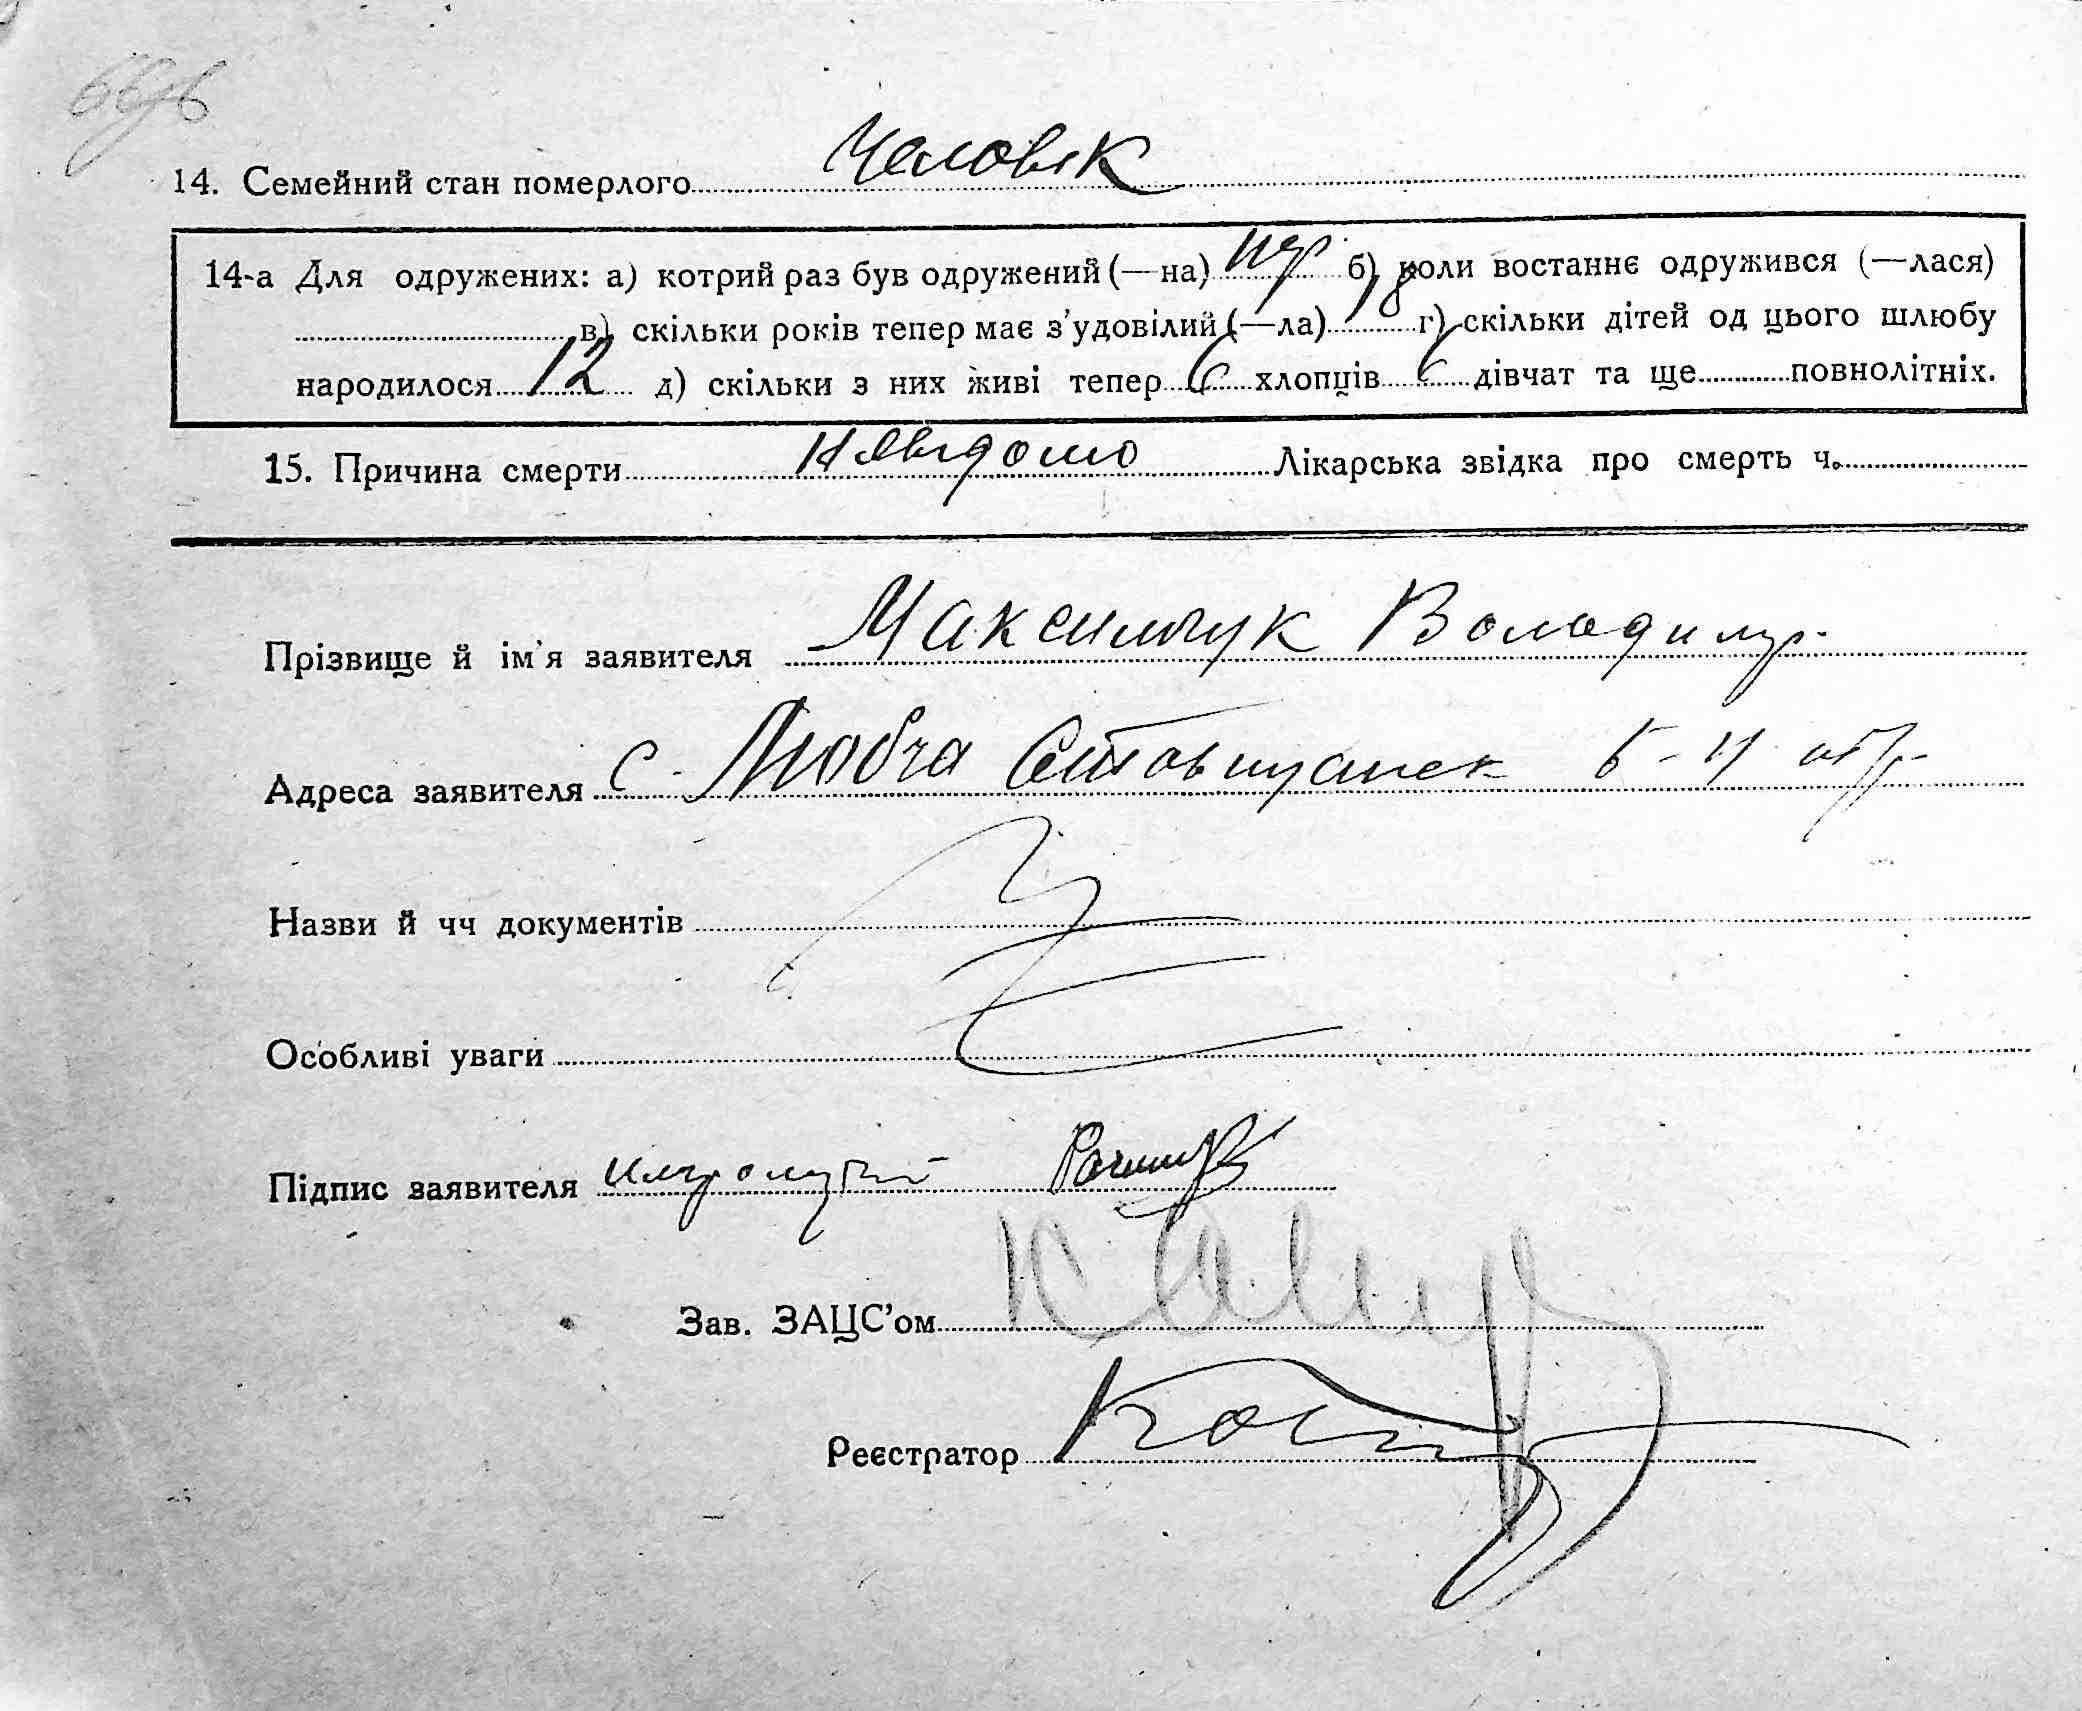 14. Семейний стан померлого Человік
14-а Для одружених: а) котрий раз був одружений (—на) пер б) коли востаннє одружився (—лася)
в) скільки років тепер має з'удовілий (—ла) г) скільки дітей од цього шлюбу
народилося 12 д) скільки з них живі тепер 6 хлопців 6 дівчат та ще повнолітніх.
15. Причина смерти невідомо Лікарська звідка про смерть ч.
Прізвище й ім'я заявителя Максимчук Володимир
Адреса заявителя с. Любча
Назви й чч документів
Особливі уваги
Підпис заявителя
Зав. ЗАЦС'ом
Реєстратор